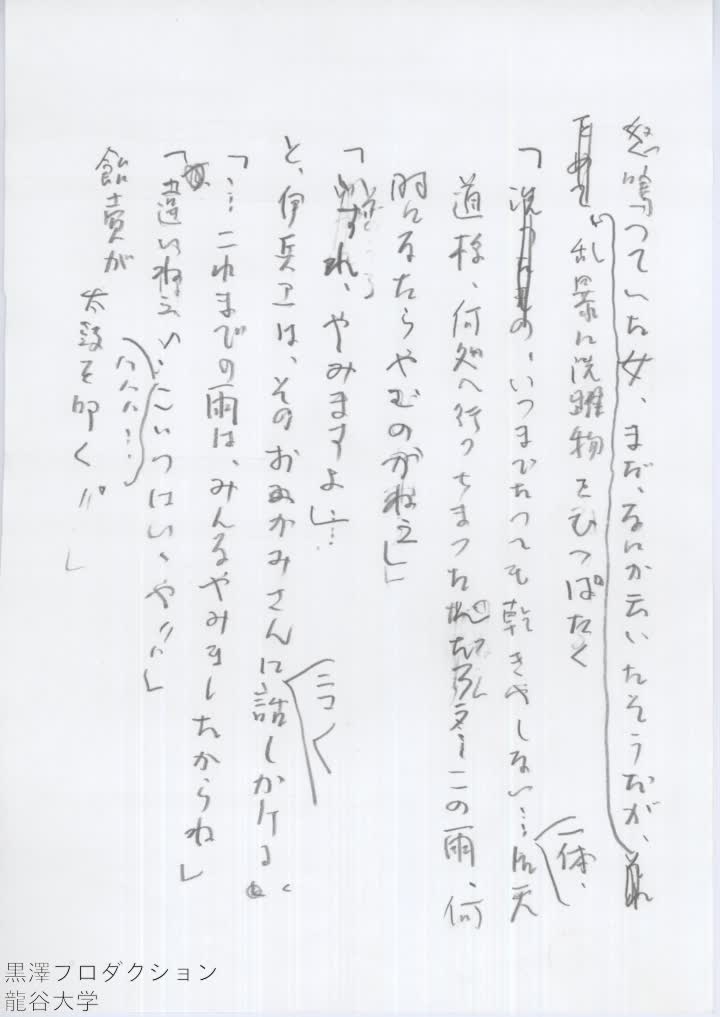 怒鳴っていた女、まだ、なにか云いたそうだが、
乱暴に洗濯物をひっぱたく
「いつまでたっても乾きやしない…お天
一体、
道様、何処へ行っちまった
この雨、何
時になったらやむのかねえ」
「やみますよ」…
と、伊兵卫は、そのおかみさんに話しかける
ニコ〱
「…これまでの雨は、みんなやみましたからね」
「違いねえ…こいつはいゝや〃」
ハハハ…
飴売が
太鼓を叩く〃」
黒澤プロダクション
龍谷大学